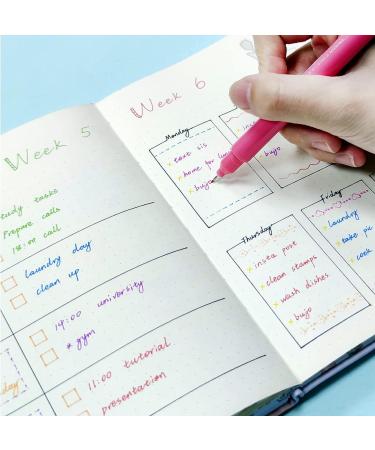 Week 5
study tasks
Prepare calls
18:00 call
laundry day
clean up
14:00 university
* gym
11:00 tutorial
presentation
day
Week 6
Monday
text sis
home for
bujo
bujo
Thursday
insta post
clean stamps
wash dishes
bujo
Friday
laundry
take pic
cook